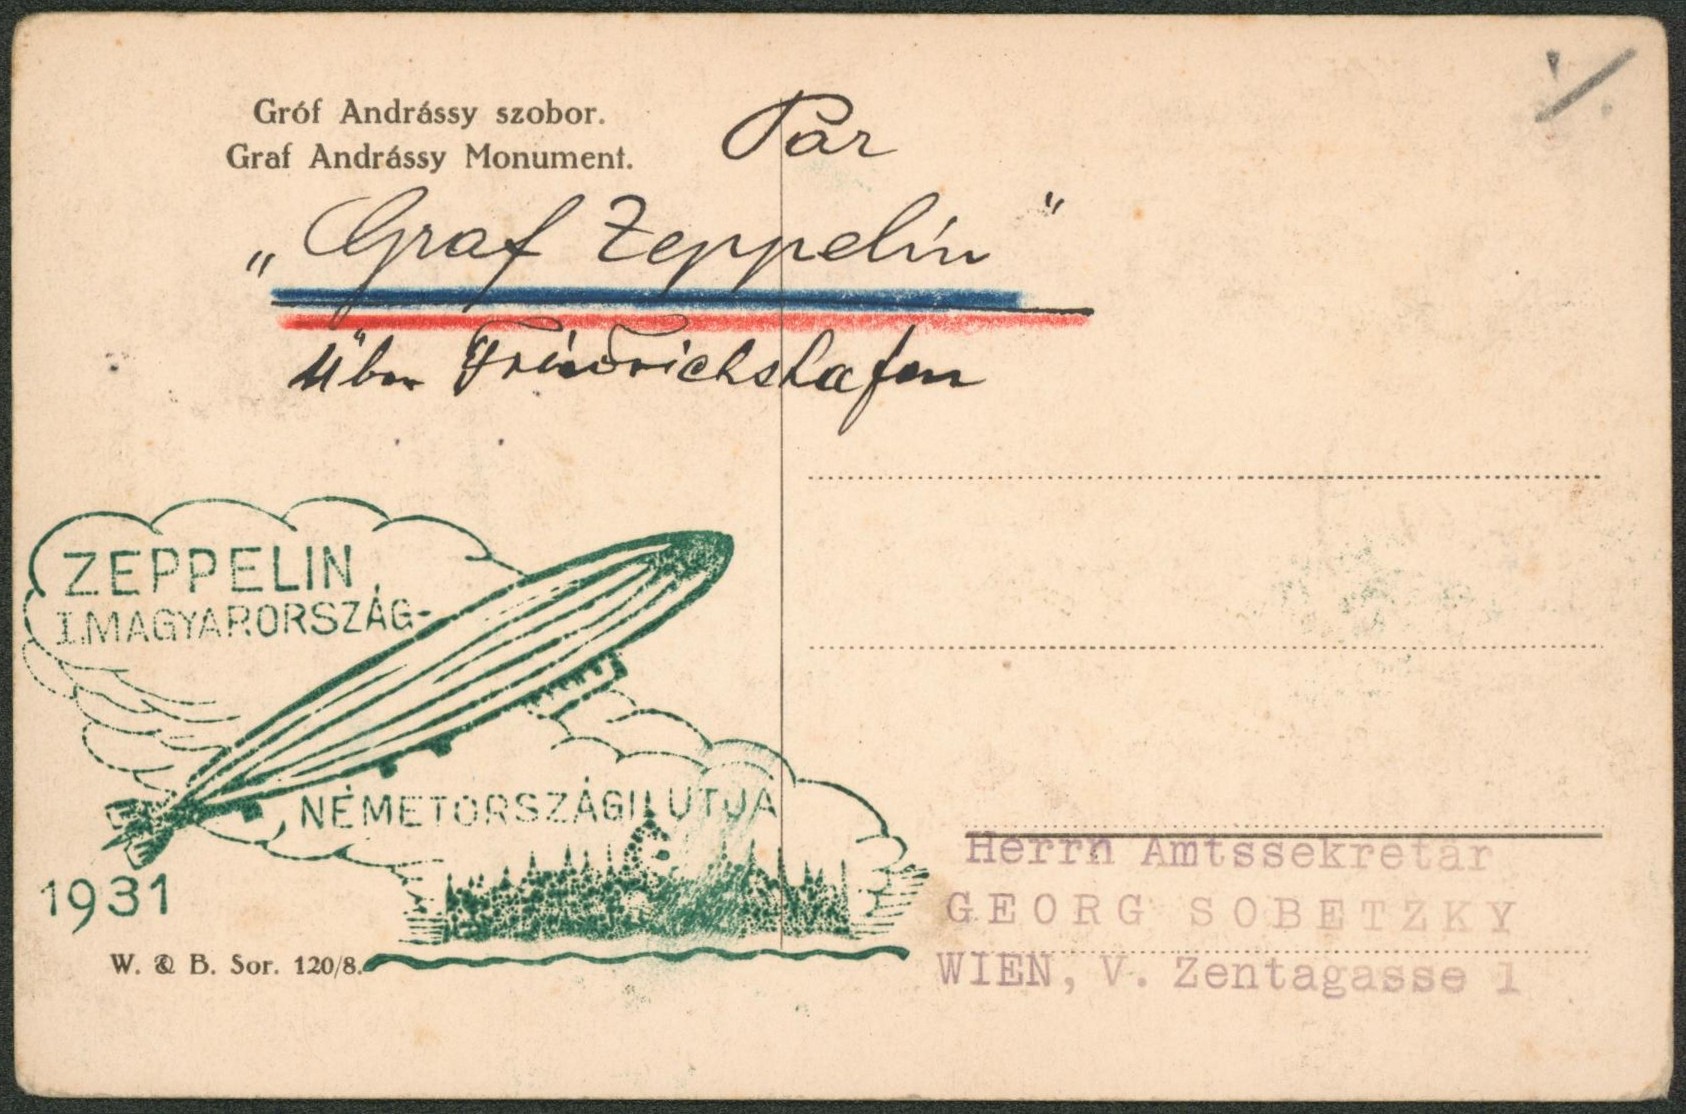 Gróf Andrássy szobor.
Graf Andrássy Monument.
Par
„Graf Zeppelin"
über Friedrichshafen
ZEPPELIN
I. MAGYARORSZÁG-
NÉMETORSZÁGI UTJA
1931
W. & B. Sor. 120/8.
Herrn Amtssekretär
GEORG SOBETZKY
WIEN, V. Zentagasse 1